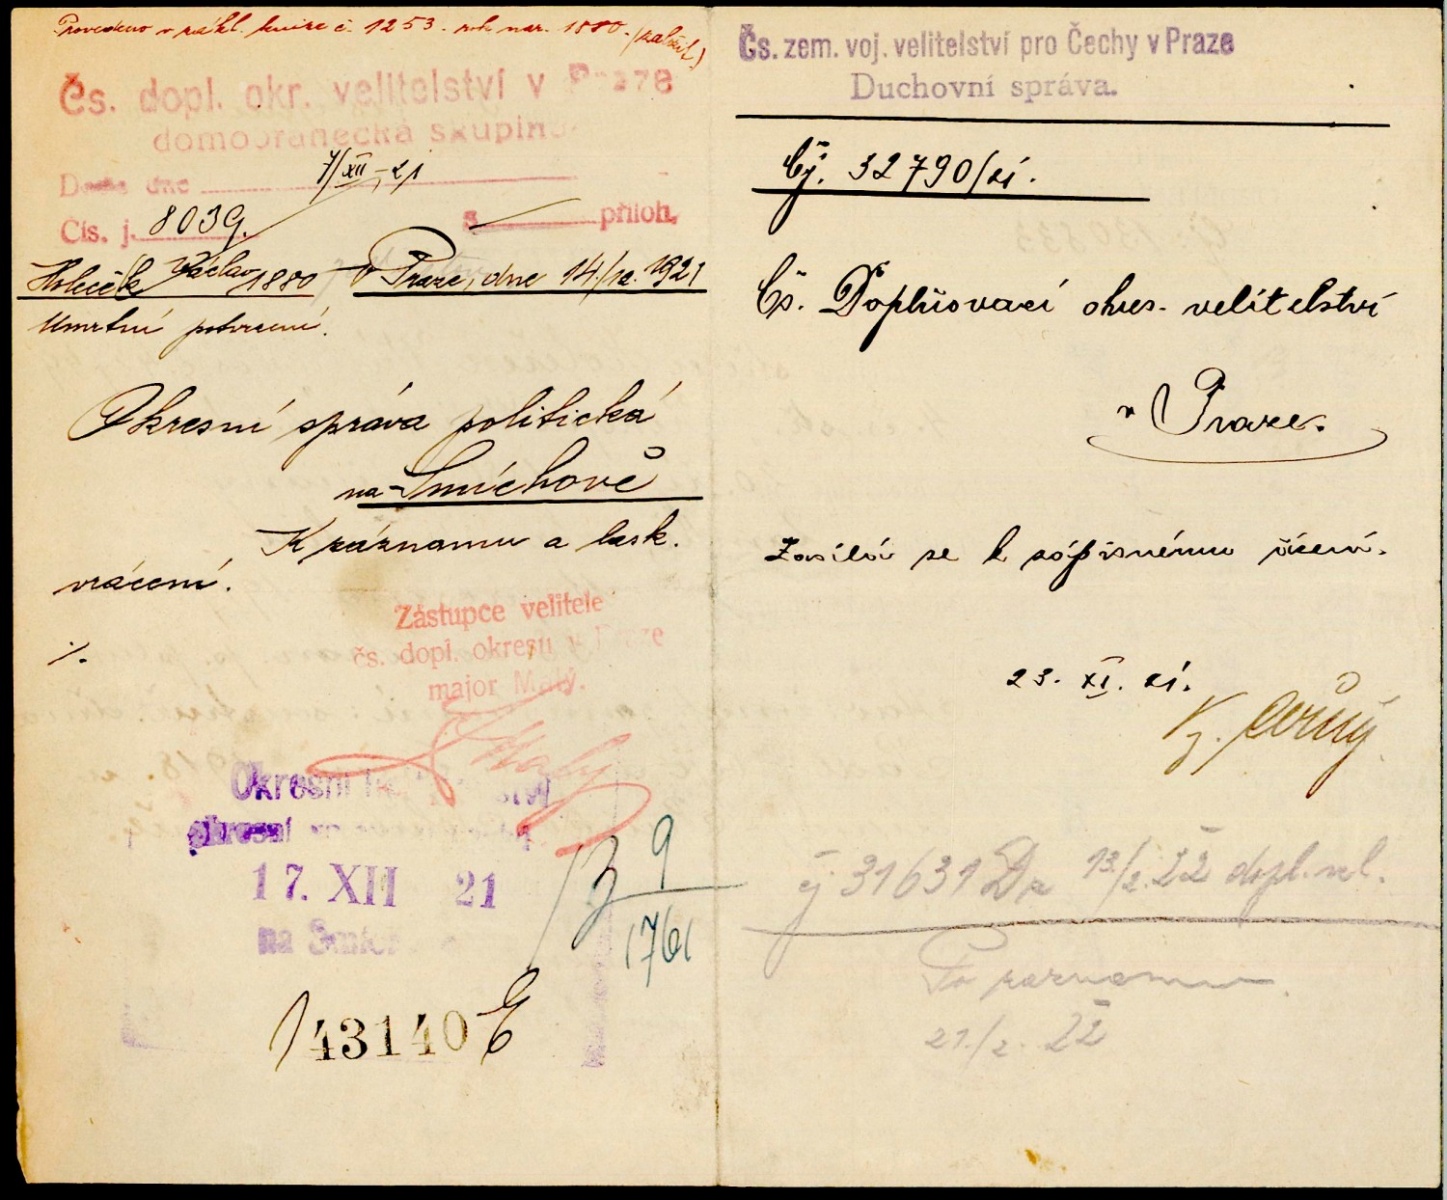 Provedeno v zákl. knize č. 1253. rok nar. 1880.
Čs. dopl. okr. velitelství v Praze
domobranecká skupina
Došlo dne 7/XII-21
Čís. j. 8039. příloh.
Holeček Václav 1880 V Praze, dne 14./12. 1921
Úmrtní potvrzení.
Okresní správa politická
na Smíchově
K záznamu a lask.
vrácení.
./.
Zástupce velitele
čs. dopl. okresu v Praze
major Malý.
Malý
Okresní
okresní
17. XII 21
na Smích
9
1761
143140
Čs. zem. voj. velitelství pro Čechy v Praze
Duchovní správa.
Čj. 32790/21.
Čs. Doplňovací okres. velitelství
v Praze.
Zasílá se k zápisnému řízení.
23. XI. 21.
Černý
čj 31631 13./2. 22 dopl. vel.
Po záznamu
21./2. 22